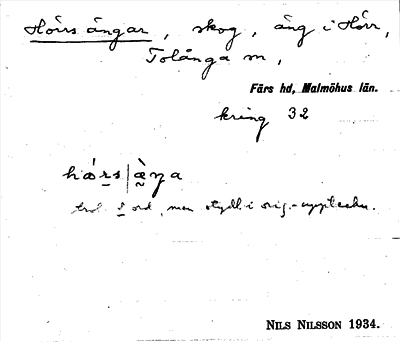 Hörrs ängar, skog, äng i Hörr,
Tolånga sn,
Färs hd, Malmöhus län.
kring 32
trol. 2 ord, men otydl. i orig.-uppteckn.
NILS NILSSON 1934.